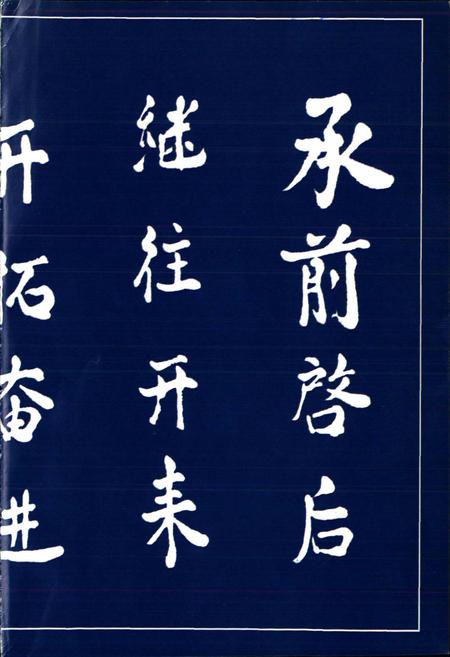 承前啓后
继往开来
开拓奋进